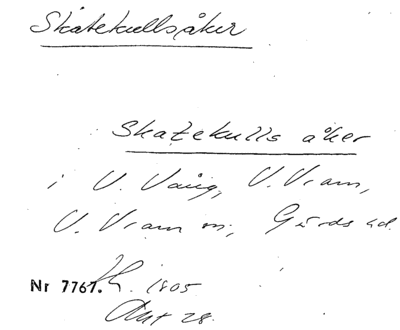 Skatekullsåker
Skatekulls åker
i V. Vång, V. Vram,
V. Vram sn, Gärds hd.
Nr 7767. 1805
Akt 28.